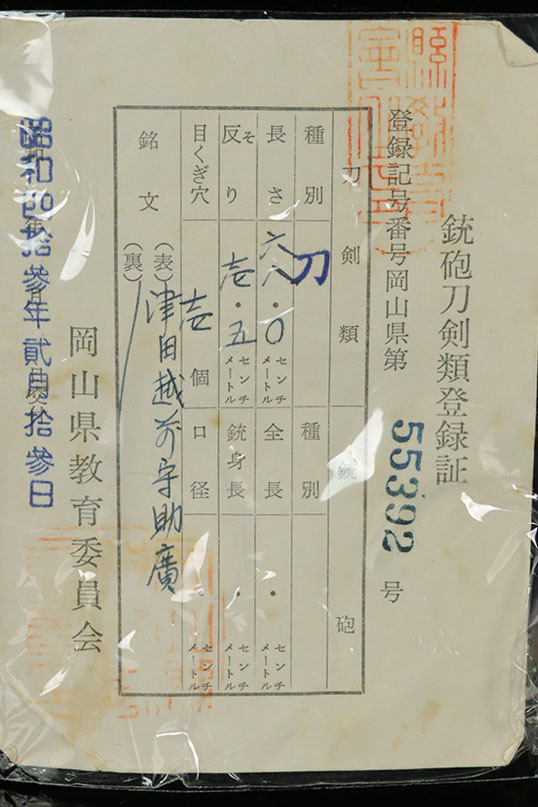 銃砲刀剣類登録証
登録記号番号岡山県第 55392 号
刀剣類
種別 刀
長さ 六八・〇 センチメートル
反り そ 壱・五 センチメートル
目くぎ穴 壱個
銃砲
種別
全長 ・ センチメートル
銃身長 ・ センチメートル
口径 ・ センチメートル
銘文
(表)津田越前守助廣
(裏)
昭和四拾参年貳月拾参日
岡山県教育委員会